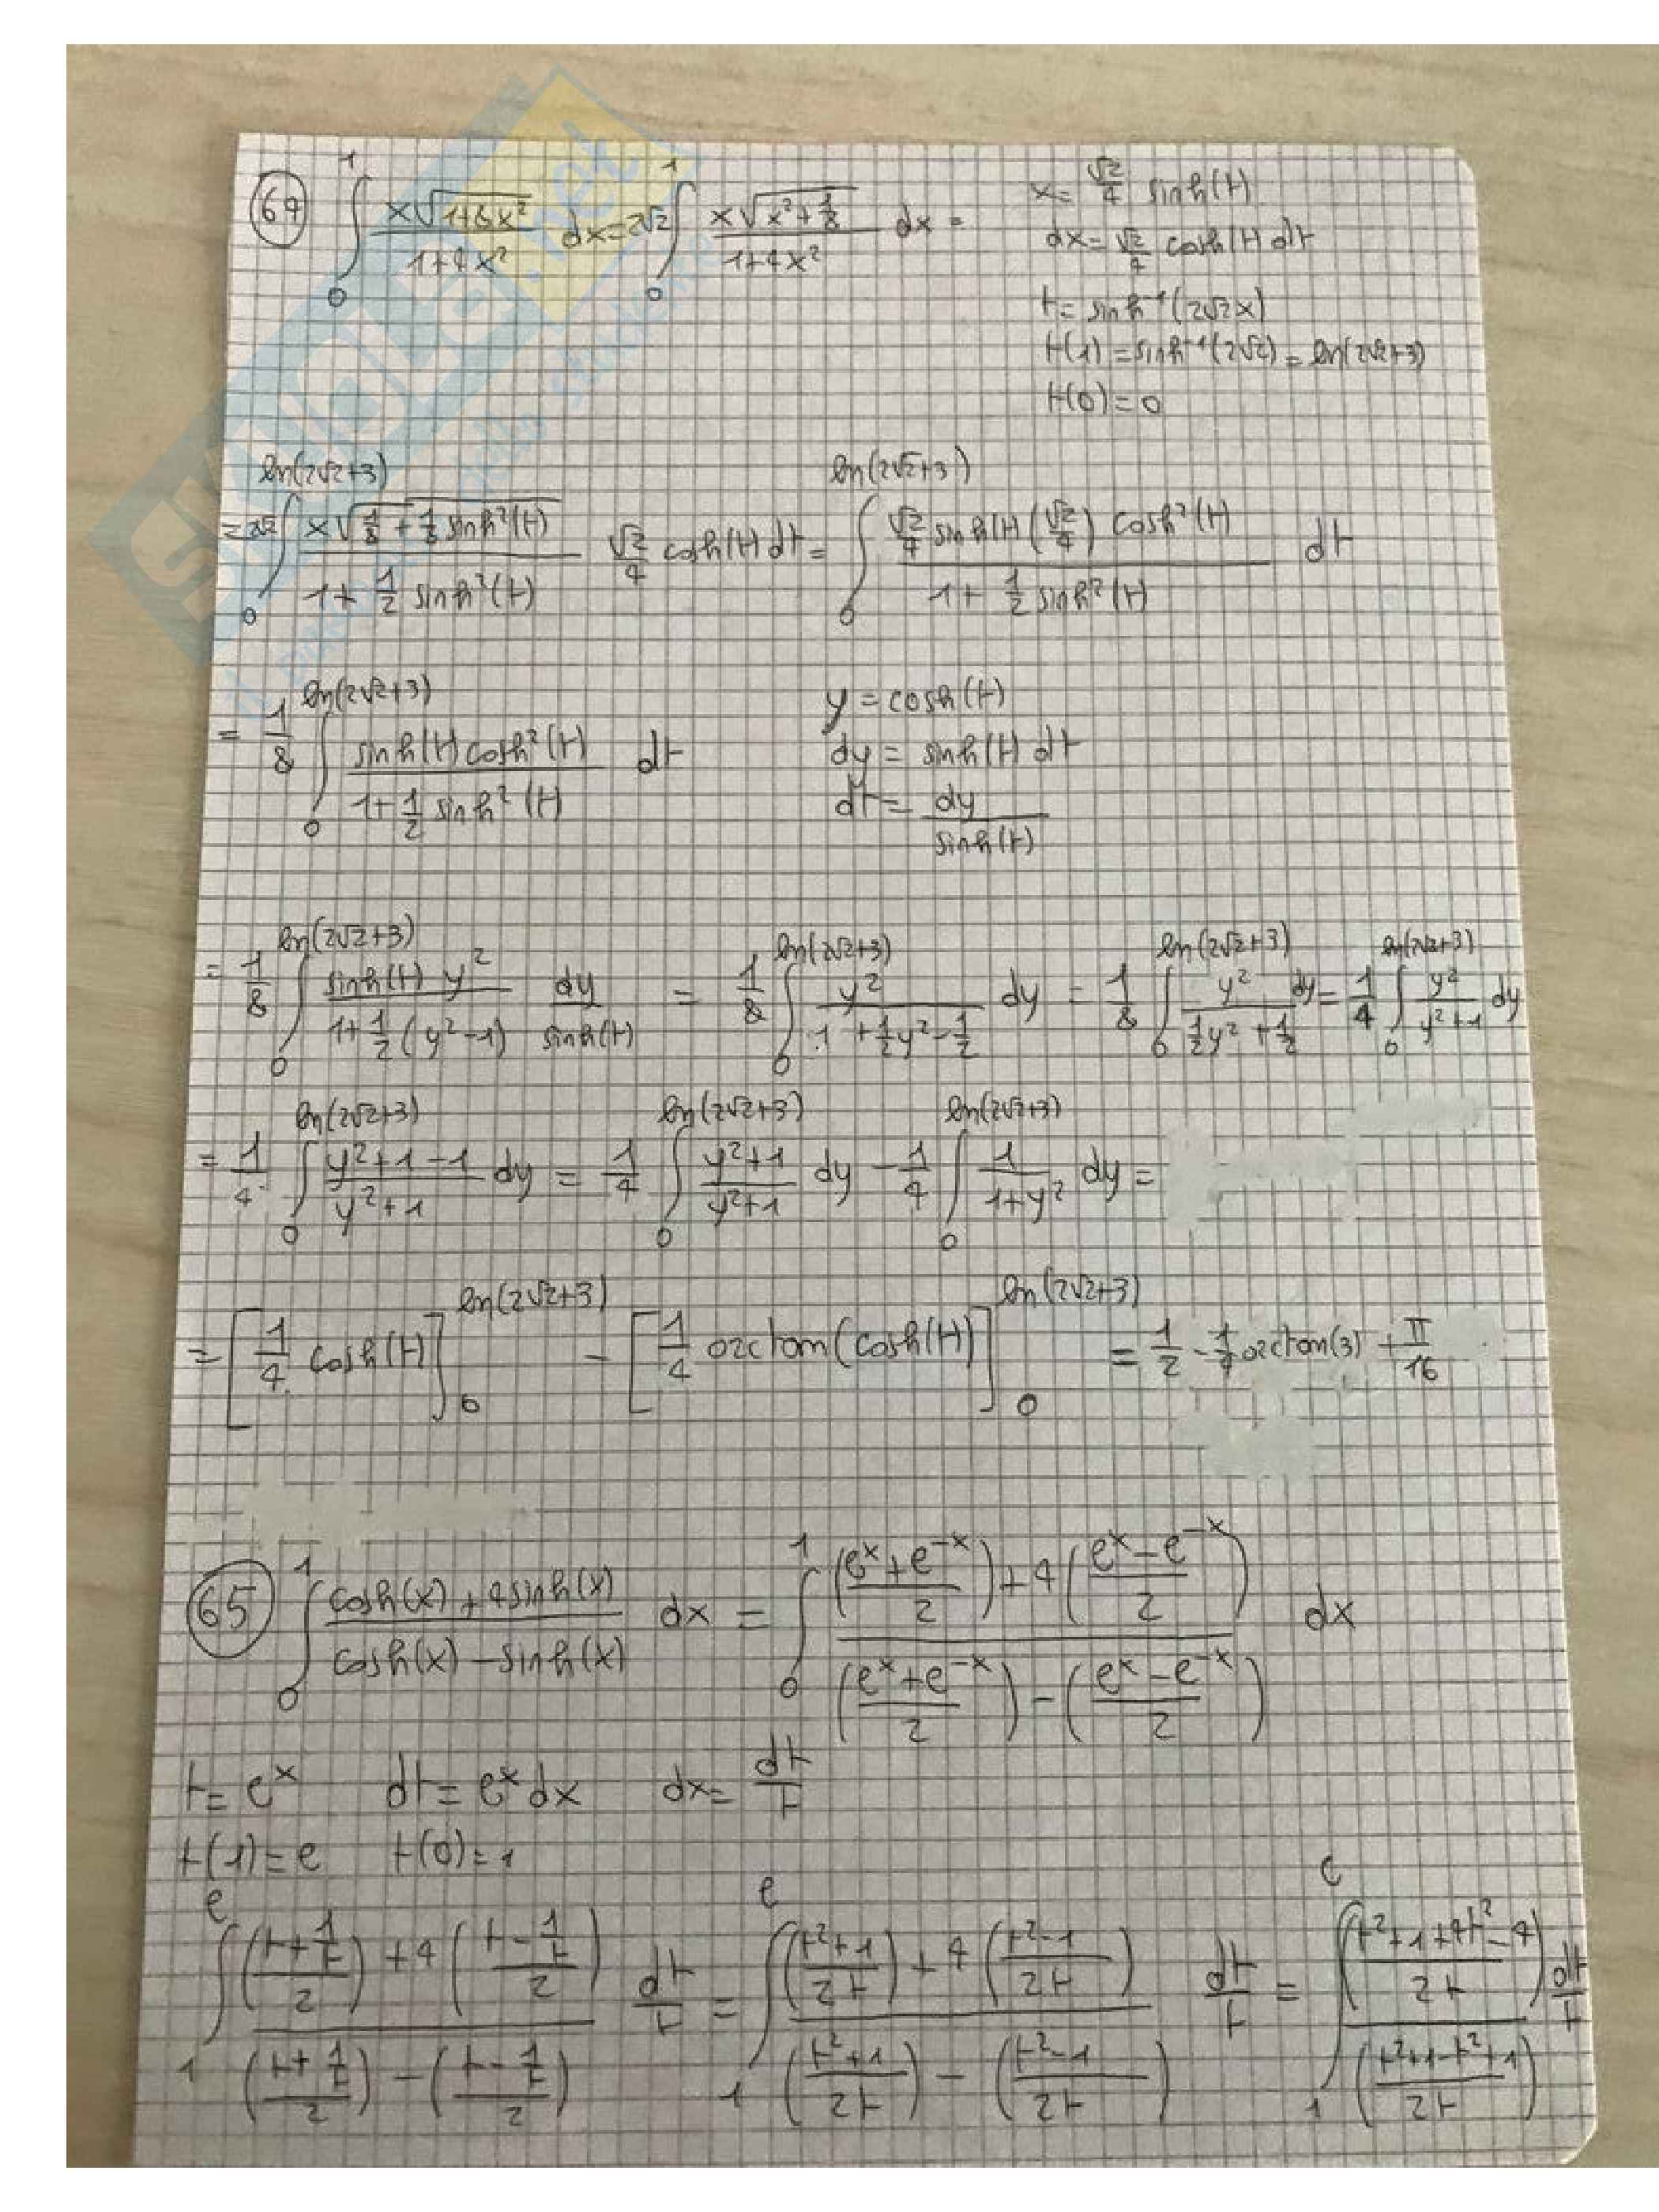 64 ∫₀¹ x√(1+8x²) / (1+4x²) dx = 2√2 ∫₀¹ x√(x²+1/8) / (1+4x²) dx =
x = √2/4 sinh(t)
dx = √2/4 cosh(t) dt
t = sinh⁻¹(2√2x)
t(1) = sinh⁻¹(2√2) = ln(2√2+3)
t(0) = 0
= 2√2 ∫₀^ln(2√2+3) x√(1/8 + 1/8 sinh²(t)) / (1 + 1/2 sinh²(t)) √2/4 cosh(t) dt = ∫₀^ln(2√2+3) √2/4 sinh(t) (√2/4) cosh²(t) / (1 + 1/2 sinh²(t)) dt
= 1/8 ∫₀^ln(2√2+3) sinh(t) cosh²(t) / (1 + 1/2 sinh²(t)) dt
y = cosh(t)
dy = sinh(t) dt
dt = dy / sinh(t)
= 1/8 ∫₀^ln(2√2+3) sinh(t) y² / (1 + 1/2 (y²-1)) dy / sinh(t) = 1/8 ∫₀^ln(2√2+3) y² / (1 + 1/2 y² - 1/2) dy = 1/8 ∫₀^ln(2√2+3) y² / (1/2 y² + 1/2) dy = 1/4 ∫₀^ln(2√2+3) y² / (y²+1) dy
= 1/4 ∫₀^ln(2√2+3) (y²+1-1) / (y²+1) dy = 1/4 ∫₀^ln(2√2+3) (y²+1) / (y²+1) dy - 1/4 ∫₀^ln(2√2+3) 1 / (1+y²) dy =
= [1/4 cosh(t)]₀^ln(2√2+3) - [1/4 arctan(cosh(t))]₀^ln(2√2+3) = 1/2 - 1/4 arctan(3) + π/16
65 ∫₀¹ (cosh(x) + 4sinh(x)) / (cosh(x) - sinh(x)) dx = ∫₀¹ (((eˣ+e⁻ˣ)/2) + 4((eˣ-e⁻ˣ)/2)) / (((eˣ+e⁻ˣ)/2) - ((eˣ-e⁻ˣ)/2)) dx
t = eˣ dt = eˣ dx dx = dt/t
t(1) = e t(0) = 1
∫₁ᵉ (((t+1/t)/2) + 4((t-1/t)/2)) / (((t+1/t)/2) - ((t-1/t)/2)) dt/t = ∫₁ᵉ (((t²+1)/2t) + 4((t²-1)/2t)) / (((t²+1)/2t) - ((t²-1)/2t)) dt/t = ∫₁ᵉ ((t²+1+4t²-4)/2t) / ((t²+1-t²+1)/2t) dt/t